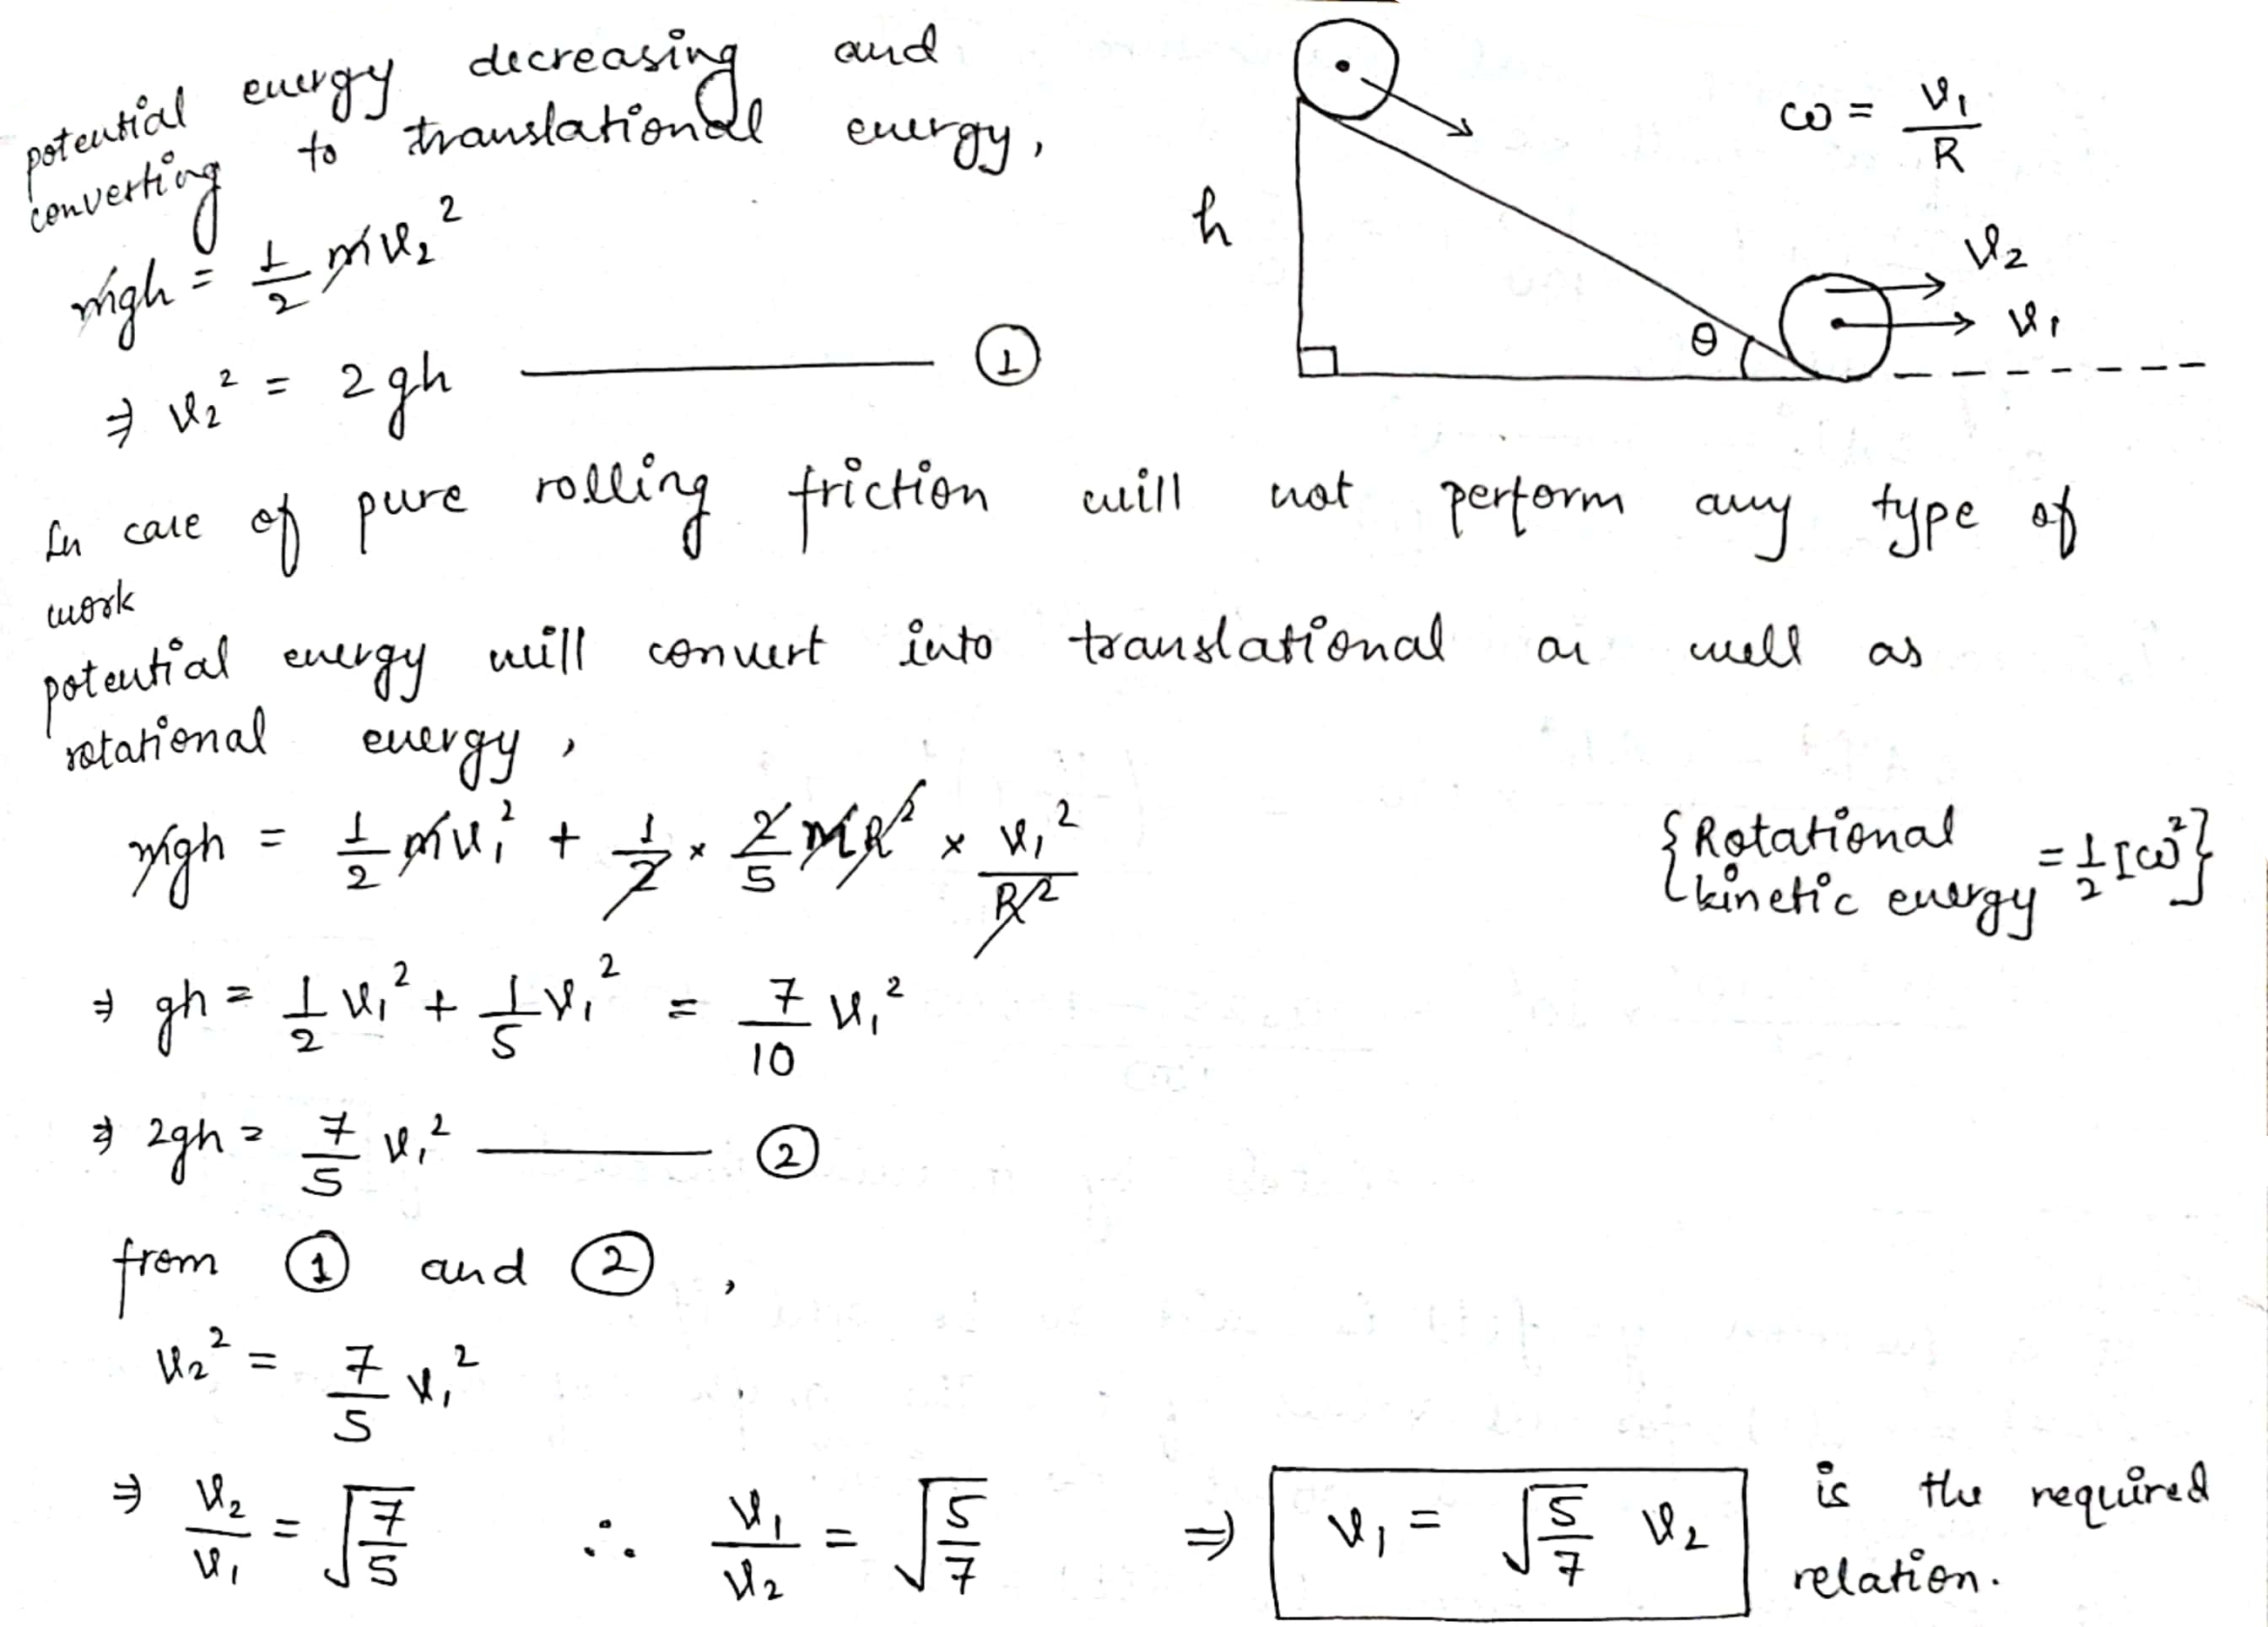 potential energy decreasing and
converting to translational energy,
mgh = 1/2 mv₂²
⇒ v₂² = 2gh ——— ①
ω = v₁/R
h
v₂
v₁
θ
In case of pure rolling friction will not perform any type of
work
potential energy will convert into translational as well as
rotational energy,
mgh = 1/2 mv₁² + 1/2 × 2/5 MR² × v₁²/R²
{Rotational kinetic energy = 1/2 Iω²}
⇒ gh = 1/2 v₁² + 1/5 v₁² = 7/10 v₁²
⇒ 2gh = 7/5 v₁² ——— ②
from ① and ②,
v₂² = 7/5 v₁²
⇒ v₂/v₁ = √(7/5) ∴ v₁/v₂ = √(5/7) ⇒ v₁ = √(5/7) v₂ is the required
relation.